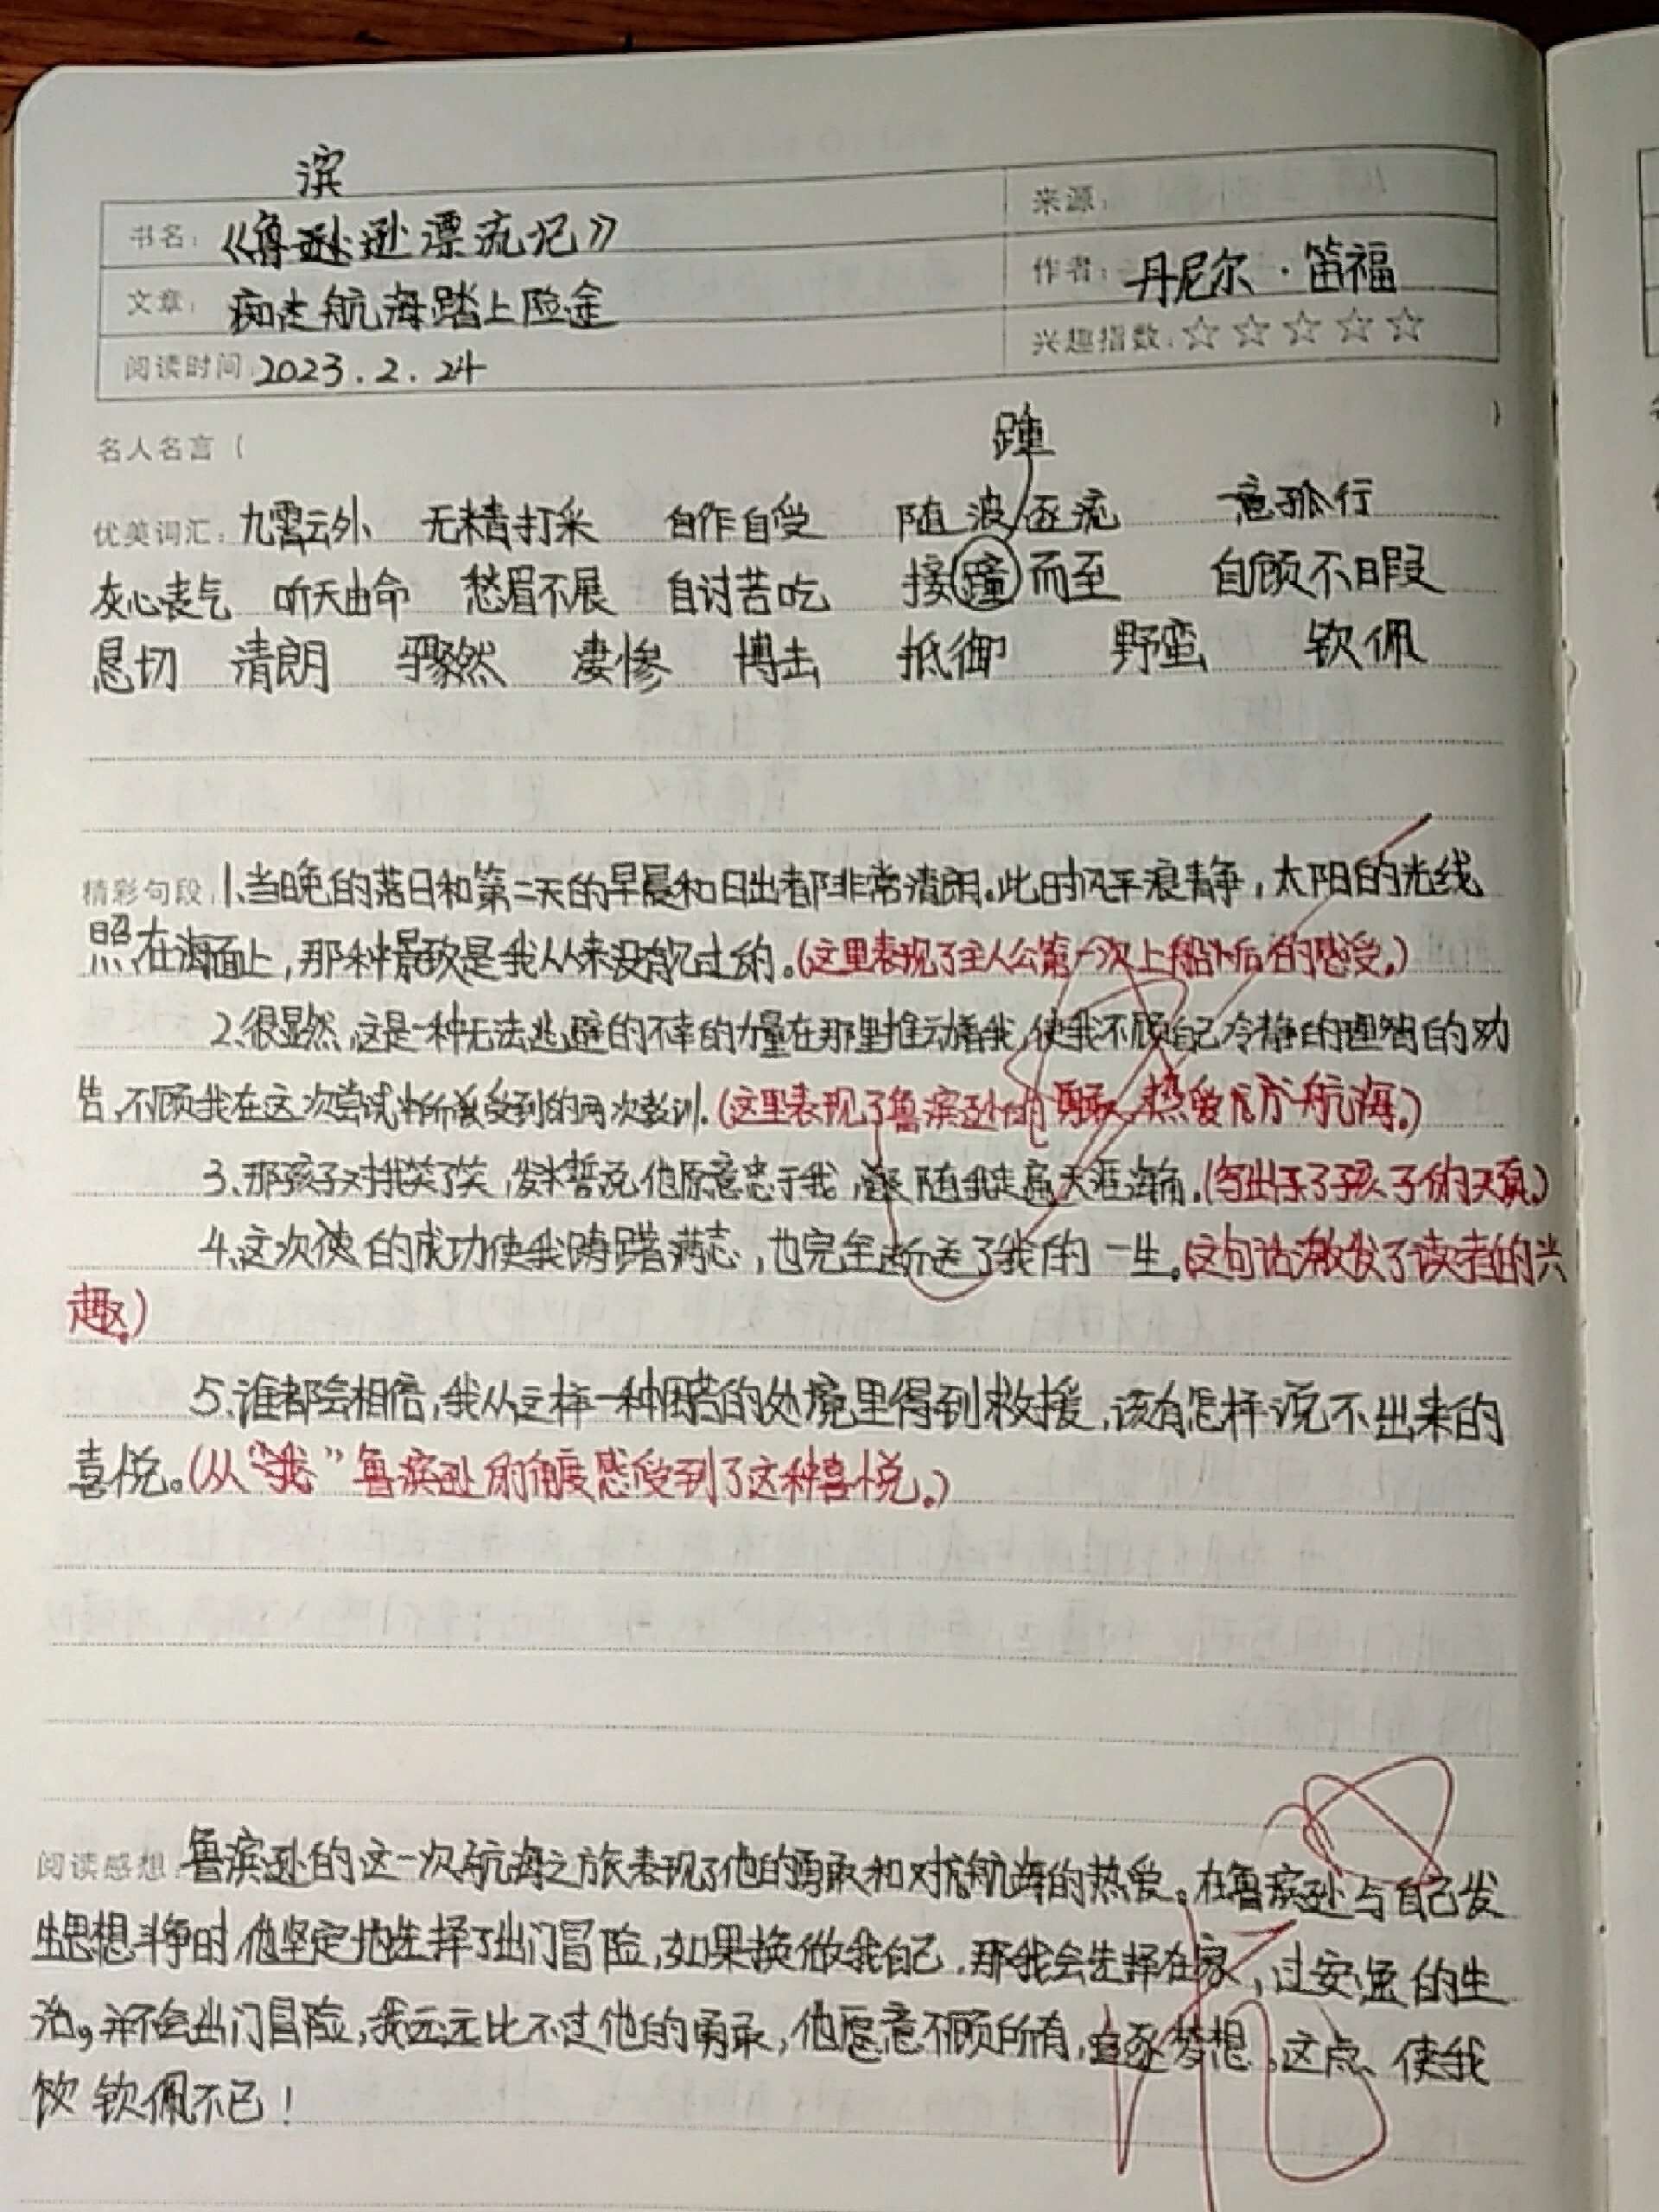 滨
书名：《鲁逊逊漂流记》 来源：
文章：痴迷航海踏上险途 作者：丹尼尔·笛福
阅读时间：2023.2.24 兴趣指数：☆☆☆☆☆
名人名言（ ）
踵
优美词汇：九霄云外 无精打采 自作自受 随波逐流 一意孤行
灰心丧气 听天由命 愁眉不展 自讨苦吃 接 而至 自顾不暇
恳切 清朗 骤然 凄惨 博击 抵御 野蛮 钦佩
精彩句段：1、当晚的落日和第二天的早晨和日出都非常清朗。此时风平浪静，太阳的光线
照在海面上，那种景致是我从来没有见过的。（这里表现了主人公第一次上船后的感受。）
2、很显然，这是一种无法逃避的不幸的力量在那里推动着我，使我不顾自己冷静的理智的劝
告，不顾我在这次尝试中所受到的两次教训。（这里表现了鲁滨逊的勇敢、热爱航海。）
3、那孩子对我笑了笑，发誓说他愿意忠于我，跟随我走遍天涯海角。（写出了孩子的天真）
4、这次的成功使我踌躇满志，也完全断送了我的一生。（这句话激发了读者的兴
趣。）
5、谁都会相信，我从这样一种困苦的处境里得到救援，该有怎样说不出来的
喜悦。（从“我”鲁滨逊的角度感受到了这种喜悦。）
阅读感想：鲁滨逊的这一次航海之旅表现了他的勇敢和对航海的热爱。在鲁滨逊与自己发
生思想斗争时，他坚定地选择了出门冒险，如果换做我自己，那我会选择在家，过安逸的生
活，并不会出门冒险，我远远比不过他的勇敢，他愿意不顾所有，追逐梦想，这点使我
饮 钦佩不已！